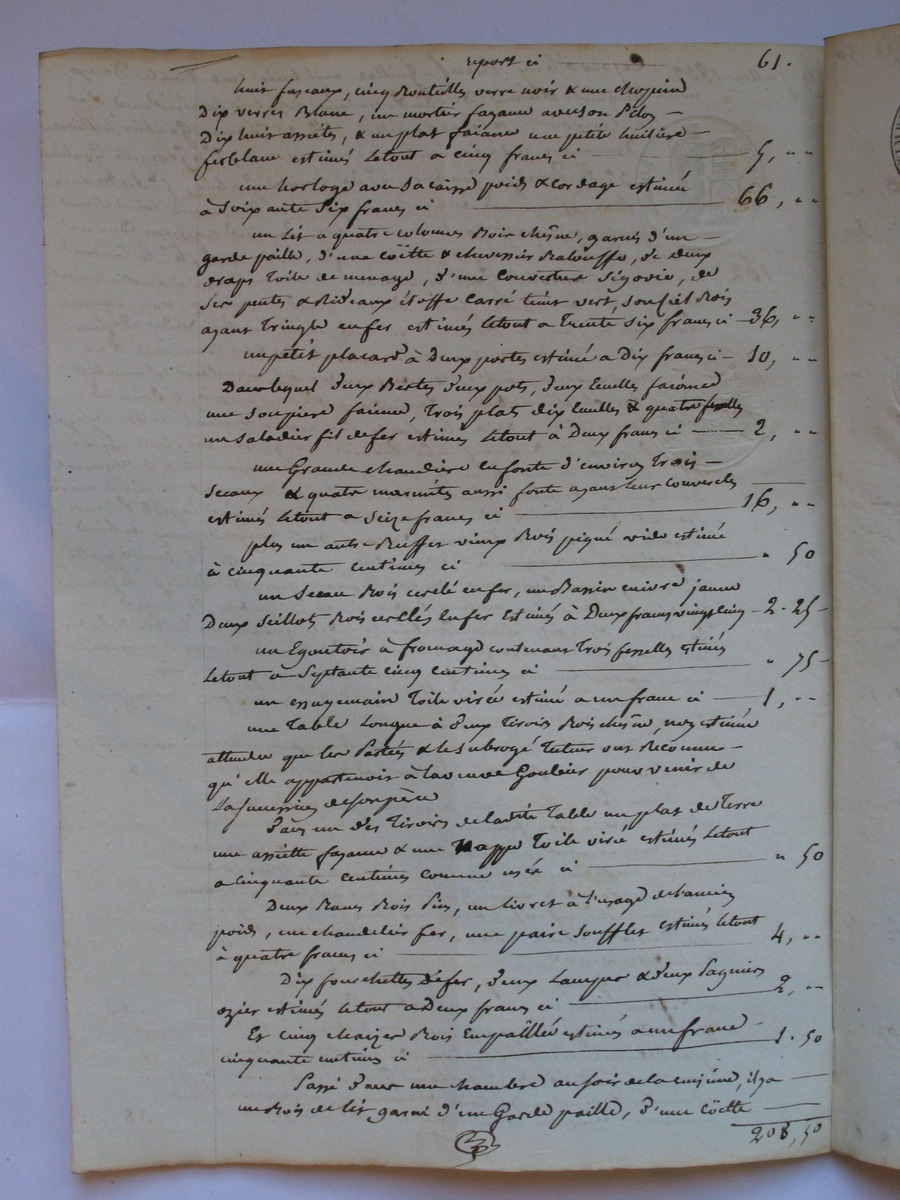 report ci 61.
huit faseaux, cinq Bouteilles verre noir & une chopine
Dix verres Blanc, un mortier fayane avec son Pilon
Dix huit assiétes, & un plat faiance une petite huiliere
ferblanc estimés letout a cinq francs ci 5, ""
une horloge avec sa caisse poids & cordage estimée
à soixante six francs ci 66, ""
un Lit a quatre colomnes Bois chêne, garnis d'un
garde paille, d'une coëtte & chevessier Balouffe, de deux
draps Toile de menage, d'une couverture Ségovie, de
Ses pentes & Rideaux étoffe carré teint vert, son ciel Bois
ayant Tringle enfer estimés letout a Trente six francs ci 36, ""
un petit placard à Deux portes estimé a Dix francs ci 10, ""
Dans lequel deux Bertes deux pots, deux Ecuelles faience
une soupiere faience, Trois plats dix Cuelles & quatre
un saladier fil de fer estimés letout à Deux francs ci 2, ""
une Grande chaudiere enfonte d'environ Trois
Seaux & quatre marmites aussi fonte ayant leur couvercles
estimés letout a Seize francs ci 16, ""
plus un autre Buffet vieux Bois piqué vide estimé
à cinquante centimes ci " 50
un Seau Bois cerclé enfer, un Bassin cuivre jaune
Deux Seillots Bois cerclés enfer Estimés à Deux francs vingt cinq 2.25
un Egoutoir à fromage contenant Trois fesselles estimés
Letout a Septante cinq centimes ci " 75
un essuyemain Toile virée estimé a un franc ci 1, ""
une Table Longue à deux Tiroirs Bois chêne, non estimée
attendu que les Parties & le subrogé Tuteur ont Reconnu
qu'elle appartenoit à la veuve Goulier pour venir de
La succession de son père
Dans un des Tiroirs de ladite Table un plat de Terre
une assiette fayance & une Nappe Toile virée estimés letout
a cinquante centimes comme usée ci " 50
Deux Bancs Bois Pin, un Livret à l'usage de l'ancien
poids, un chandelier fer, une paire Soufflet estimés letout
à quatre francs ci 4, ""
Dix fourchettes de fer, deux Lampes & deux Pagniers
ozier estimés letout a Deux francs ci 2, ""
Et cinq chaizes Bois Empaillée estimés a un franc
cinquante centimes ci 1.50
Passé dans une chambre au soir de la cuisine, il y a
un Bois de lit garni d'un Garde paille, d'une Coëtte
208,50